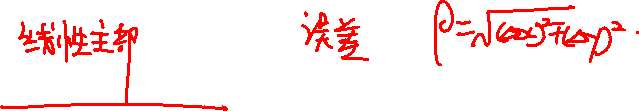 线性主部 误差 ρ=√(Δx)²+(Δy)².